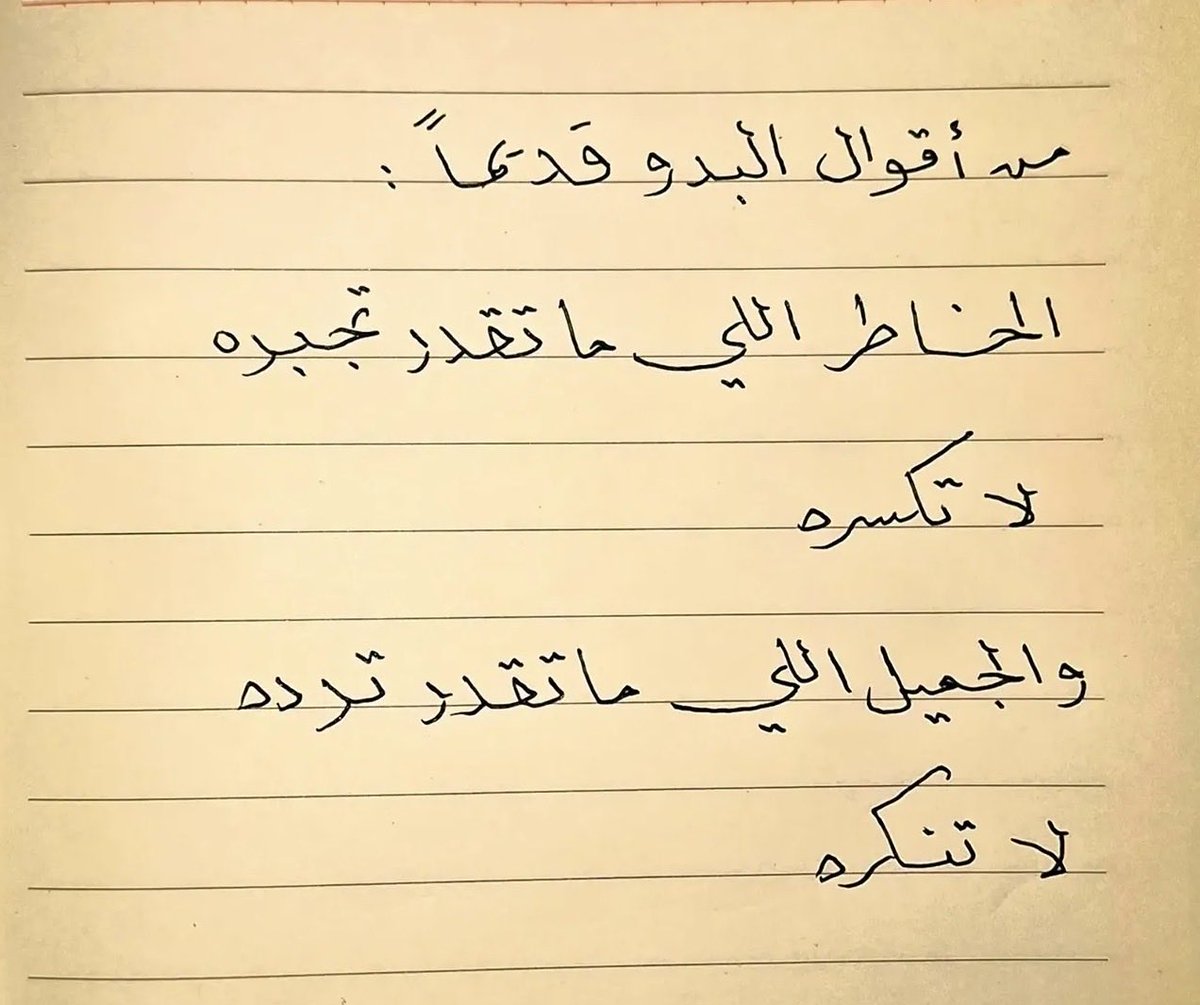 من أقوال البدو قديماً :
الخاطر اللي ما تقدر تجبره
لا تكسره
والجميل اللي ما تقدر ترده
لا تنكره